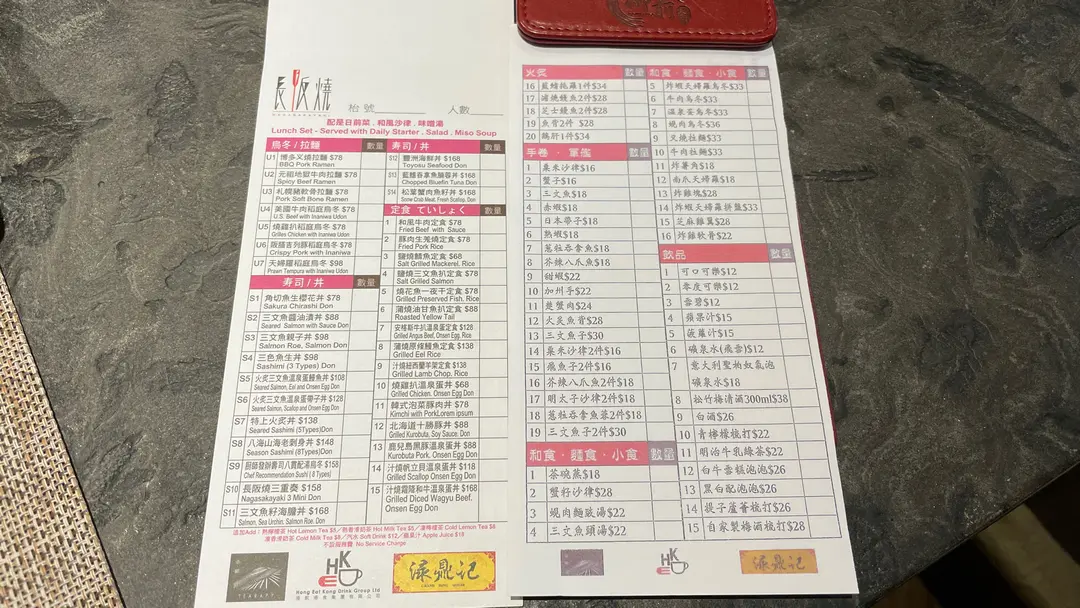 長阪燒
枱號 人數
配是日前菜．和風沙律．味噌湯
Lunch Set - Served with Daily Starter . Salad . Miso Soup
烏冬/拉麵 數量
U1 博多义燒拉麵 $78
BBQ Pork Ramen
U2 元祖地獄牛肉拉麵 $78
Spicy Beef Ramen
U3 札幌豬軟骨拉麵 $78
Pork Soft Bone Ramen
U4 美國牛肉稻庭烏冬 $78
U.S. Beef with Inaniwa Udon
U5 燒雞扒稻庭烏冬 $78
Grilles Chicken with Inaniwa Udon
U6 吉列豚稻庭烏冬 $78
Crispy Pork with Inaniwa
U7 天婦羅稻庭烏冬 $98
Prawn Tempura with Inaniwa Udon
寿司/丼 數量
S1 角切魚生櫻花丼 $78
Sakura Chirashi Don
S2 三文魚醬油漬丼 $88
Seared Salmon with Sauce Don
S3 三文魚親子丼 $98
Salmon Roe, Salmon Don
S4 三色魚生丼 $98
Sashimi (3 Types) Don
S5 火炙三文魚溫泉蛋鰻魚丼 $108
Seared Salmon, Eel and Onsen Egg Don
S6 火炙三文魚溫泉蛋帶子丼 $128
Seared Salmon, Scallop and Onsen Egg Don
S7 特上火炙丼 $138
Seared Sashimi (5Types)Don
S8 八海山海老刺身丼 $148
Season Sashimi (8Types)Don
S9 廚師發辦壽司八貫配湯烏冬 $158
Chef Recommendation Sushi ( 8 Types)
S10 長阪燒三重奏 $158
Nagasakayaki 3 Mini Don
S11 三文魚籽海膽丼 $168
Salmon, Sea Urchin, Salmon Roe. Don
寿司/丼 數量
S12 豐洲海鮮丼 $168
Toyosu Seafood Don
S13 藍鰭吞拿魚腩蓉丼 $168
Chopped Bluefin Tuna Don
S14 松葉蟹肉魚籽丼 $168
Snow Crab Meat, Fresh Scallop, Don
定食 ていしょく 數量
1 和風牛肉定食 $78
Fried Beef with Sauce
2 豚肉生羌燒定食 $78
Fried Pork Rice
3 鹽燒鯖魚定食 $68
Salt Grilled Mackerel, Rice
4 鹽燒三文魚扒定食 $78
Salt Grilled Salmon
5 燒花魚一夜干定食 $78
Grilled Preserved Fish, Rice
6 蒲燒油甘魚扒定食 $88
Roasted Yellow Tail
7 安格斯牛扒溫泉蛋定食 $128
Grilled Angus Beef, Onsen Egg, Rice
8 蒲燒原條鰻魚定食 $138
Grilled Eel Rice
9 汁燒紐西蘭羊架定食 $138
Grilled Lamb Chop, Rice
10 燒雞扒溫泉蛋丼 $68
Grilled Chicken. Onsen Egg Don
11 韓式泡菜豚肉丼 $78
Kimchi with PorkLorem ipsum
12 北海道十勝豚丼 $88
Grilled Kurobuta, Soy Sauce. Don
13 鹿兒島黑豚溫泉蛋丼 $88
Kurobuta Pork. Onsen Egg Don
14 汁燒帆立貝溫泉蛋丼 $118
Grilled Scallop Onsen Egg Don
15 汁燒霜降和牛溫泉蛋丼 $168
Grilled Diced Wagyu Beef.
Onsen Egg Don
追加Add：熱檸檬茶 Hot Lemon Tea $5／熱香滑奶茶 Hot Milk Tea $5／凍檸檬茶 Cold Lemon Tea $8
凍香滑奶茶 Cold Milk Tea $8／汽水 Soft Drink $12／蘋果汁 Apple Juice $18
不設服務費 No Service Charge
TERRAPY
HK
Hong Eet Kong Drink Group Ltd
渌鼎记
火炙 數量
16 藍鰭拖羅1件$34
17 浦燒鰻魚2件$28
18 芝士鰻魚2件$28
19 魚背2件 $28
20 鵝肝1件$34
手卷．軍艦 數量
1 粟米沙律$16
2 蟹子$16
3 三文魚$18
4 赤蝦$18
5 日本帶子$18
6 熟蝦$18
7 葱粒吞拿魚$18
8 芥辣八爪魚$18
9 甜蝦$22
10 加州手$22
11 蟹肉$24
12 火炙魚背$28
13 三文魚子$30
14 粟米沙律2件$16
15 飛魚子2件$16
16 芥辣八爪魚2件$18
17 明太子沙律2件$18
18 葱粒吞拿魚蓉2件$18
19 三文魚子2件$30
和食．麵食．小食 數量
1 茶碗蒸$18
2 蟹籽沙律$28
3 蜆肉麵豉湯$22
4 三文魚頭湯$22
和食．麵食．小食 數量
5 炸蝦天婦羅烏冬$33
6 牛肉烏冬$33
7 溫泉蛋烏冬$33
8 蜆肉烏冬$36
9 叉燒拉麵$33
10 牛肉拉麵$33
11 炸薯角$18
12 南瓜天婦羅$18
13 炸雞塊$28
14 炸蝦天婦羅拼盤$33
15 芝麻雞翼$28
16 炸軟骨$22
飲品 數量
1 可口可樂$12
2 零度可樂$12
3 雪碧$12
4 蘋果汁$15
5 菠蘿汁$15
6 礦泉水(飛雪)$12
7 意大利聖柏奴氣泡
礦泉水$18
8 松竹梅清酒300ml$38
9 白酒$26
10 青檸檬梳打$22
11 明治牛乳綠茶$22
12 白牛雪糕泡泡$26
13 黑白配泡泡$26
14 提子蘆薈梳打$26
15 自家製梅酒梳打$28
HK
渌鼎记